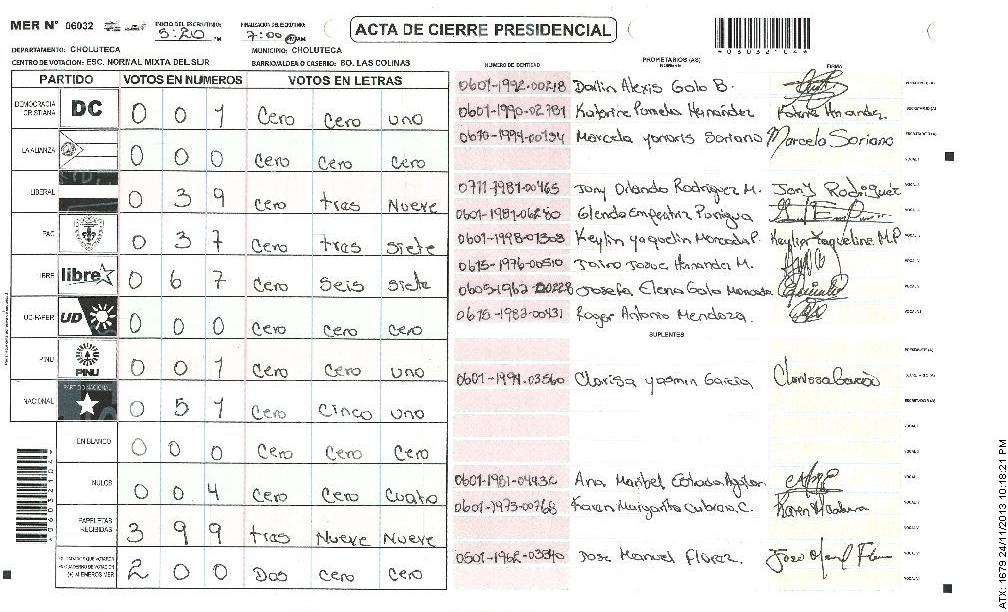 MER N° 06032 INICIO DEL ESCRUTINIO: 5:20 PM FINALIZACION DEL ESCRUTINIO: 7:00 PM AM ACTA DE CIERRE PRESIDENCIAL
*06032104*
DEPARTAMENTO: CHOLUTECA MUNICIPIO: CHOLUTECA
CENTRO DE VOTACION: ESC. NORMAL MIXTA DEL SUR BARRIO/ALDEA O CASERIO: BO. LAS COLINAS
PARTIDO VOTOS EN NUMEROS VOTOS EN LETRAS
DEMOCRACIA CRISTIANA DC 0 0 1 Cero Cero uno
LA ALIANZA 0 0 0 Cero Cero Cero
LIBERAL 0 3 9 Cero tras Nueve
PAC 0 3 7 Cero tras Siete
LIBRE libre 0 6 7 Cero Seis Siete
UD-FAPER UD 0 0 0 Cero Cero Cero
PINU PINU 0 0 1 Cero Cero uno
NACIONAL PARTIDO NACIONAL 0 5 1 Cero Cinco uno
EN BLANCO 0 0 0 Cero Cero Cero
NULOS 0 0 4 Cero Cero Cuatro
PAPELETAS RECIBIDAS 3 9 9 tras Nueve Nueve
CIUDADANOS QUE VOTARON 2 0 0 Dos Cero Cero
(+) MIEMBROS MER
*06032104*
PROPIETARIOS (AS)
NUMERO DE IDENTIDAD NOMBRE FIRMA
0601-1992-00218 Darlin Alexis Galo B.
0601-1990-02781 Katerine Pamela Hernández
Marcela yonaris Soriano Marcela Soriano
0711-1981-00465 Jony Orlando Rodriguez M. Jony Rodriguez
0601-1981-06280 Glenda
0601-1998-01303 Keylin yaquelin Moncada P. Keylin Yaqueline M.P
0615-1976-00510 Jairo Josue Hernandez M.
0605-1962-00228 Josefa Elena Galo Moncada
0615-1983-00431 Roger Antonio Mendoza.
SUPLENTES
0601-1991-03560 Clarisa yasmin Garcia Clarissa Garcia
0601-1981-04432 Ana Maribel Estrada Aguilar
0601-1973-00768 Karen Margarita Cubas C.
0501-1962-03840 Jose Manuel Florez.
ATX: 1679 24/11/2013 10:18:21 PM